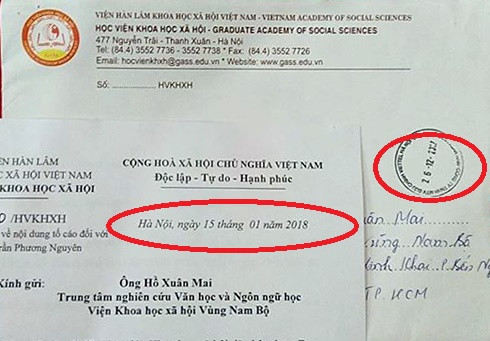 VIỆN HÀN LÂM KHOA HỌC XÃ HỘI VIỆT NAM - VIETNAM ACADEMY OF SOCIAL SCIENCES
HỌC VIỆN KHOA HỌC XÃ HỘI - GRADUATE ACADEMY OF SOCIAL SCIENCES
477 Nguyễn Trãi - Thanh Xuân - Hà Nội
Tel: (84.4) 3552 7736 - 3552 7738 * Fax: (84.4) 3552 7726
Email: hocvienkhxh@gass.edu.vn * Wesbsite: www.gass.edu.vn
Số: ........................ HVKHXH
IỆN HÀN LÂM
KHOA HỌC XÃ HỘI
CỘNG HOÀ XÃ HỘI CHỦ NGHĨA VIỆT NAM
Độc lập - Tự do - Hạnh phúc
/HVKHXH
Hà Nội, ngày 15 tháng 01 năm 2018
về nội dung tố cáo đối với
rần Phương Nguyên
Kính gửi:
Ông Hồ Xuân Mai
Trung tâm nghiên cứu Văn học và Ngôn ngữ học
Viện Khoa học xã hội Vùng Nam Bộ
Mai
Nam Bộ
Khai
TP. HCM